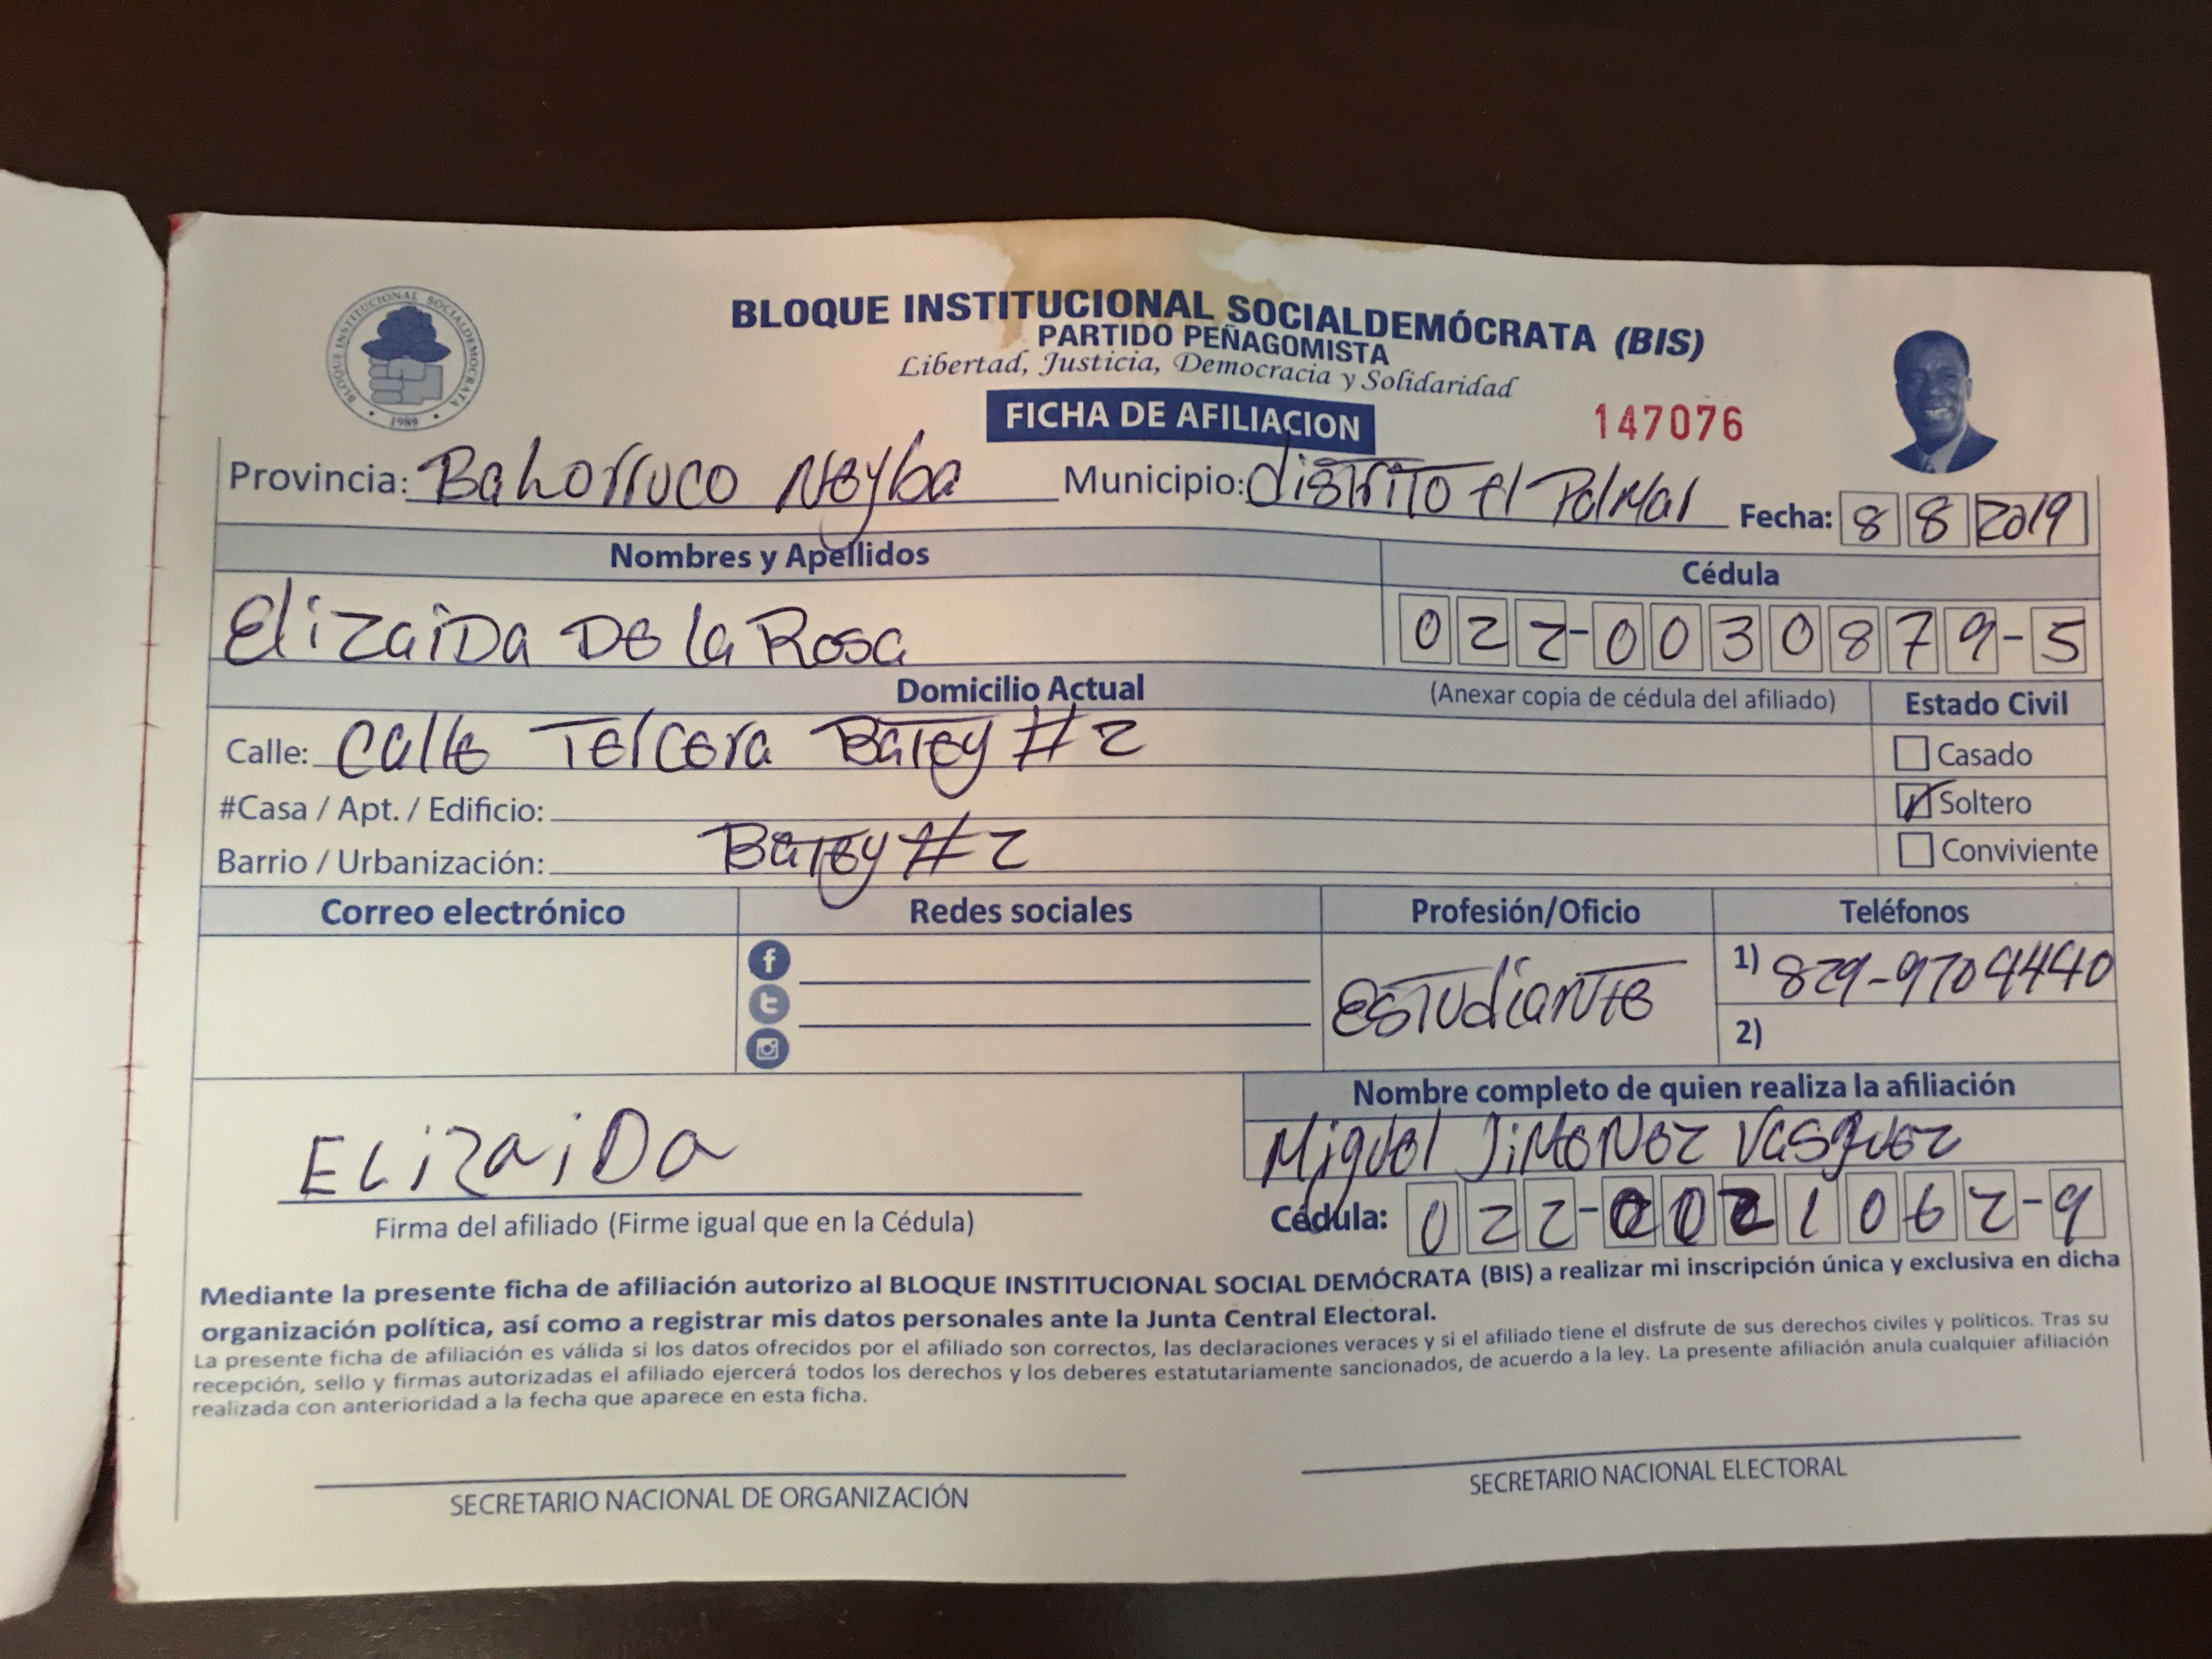 BLOQUE INSTITUCIONAL SOCIALDEMOCRATA
1989
BLOQUE INSTITUCIONAL SOCIALDEMÓCRATA (BIS)
PARTIDO PEÑAGOMISTA
Libertad, Justicia, Democracia y Solidaridad
FICHA DE AFILIACION
147076
Provincia: Bahorruco Neyba Municipio: distrito el Palmar Fecha: 8 8 2019
Nombres y Apellidos Cédula
Elizaida De la Rosa 022-0030879-5
Domicilio Actual (Anexar copia de cédula del afiliado) Estado Civil
Calle: Calle Tercera Batey #2 Casado
#Casa / Apt. / Edificio: Soltero
Barrio / Urbanización: Batey #2 Conviviente
Correo electrónico Redes sociales Profesión/Oficio Teléfonos
Estudiante 1) 829-9704440
2)
Nombre completo de quien realiza la afiliación
Miguel Jimenez Vasquez
Elizaida
Firma del afiliado (Firme igual que en la Cédula) Cédula: 022-0021062-9
Mediante la presente ficha de afiliación autorizo al BLOQUE INSTITUCIONAL SOCIAL DEMÓCRATA (BIS) a realizar mi inscripción única y exclusiva en dicha
organización política, así como a registrar mis datos personales ante la Junta Central Electoral.
La presente ficha de afiliación es válida si los datos ofrecidos por el afiliado son correctos, las declaraciones veraces y si el afiliado tiene el disfrute de sus derechos civiles y políticos. Tras su
recepción, sello y firmas autorizadas el afiliado ejercerá todos los derechos y los deberes estatutariamente sancionados, de acuerdo a la ley. La presente afiliación anula cualquier afiliación
realizada con anterioridad a la fecha que aparece en esta ficha.
SECRETARIO NACIONAL DE ORGANIZACIÓN SECRETARIO NACIONAL ELECTORAL